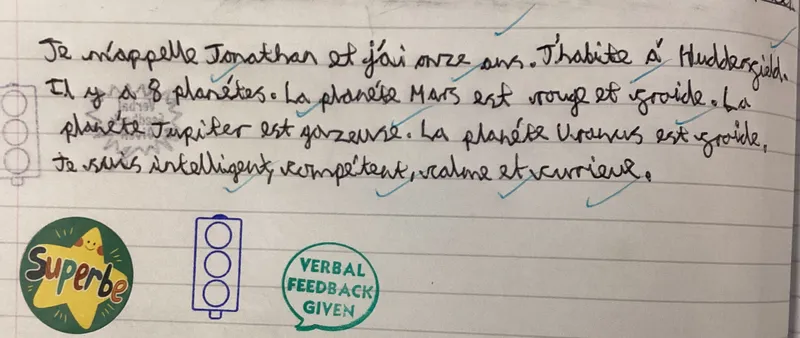 Je m'appelle Jonathan et j'ai onze ans. J'habite á Huddersgield.
Il y a 8 planétes. La planéte Mars est rouge et froide. La
planéte Jupiter est gazeuse. La planéte Uranus est froide.
Je suis intelligent, compétent, calme et currieux.
Superbe
VERBAL
FEEDBACK
GIVEN